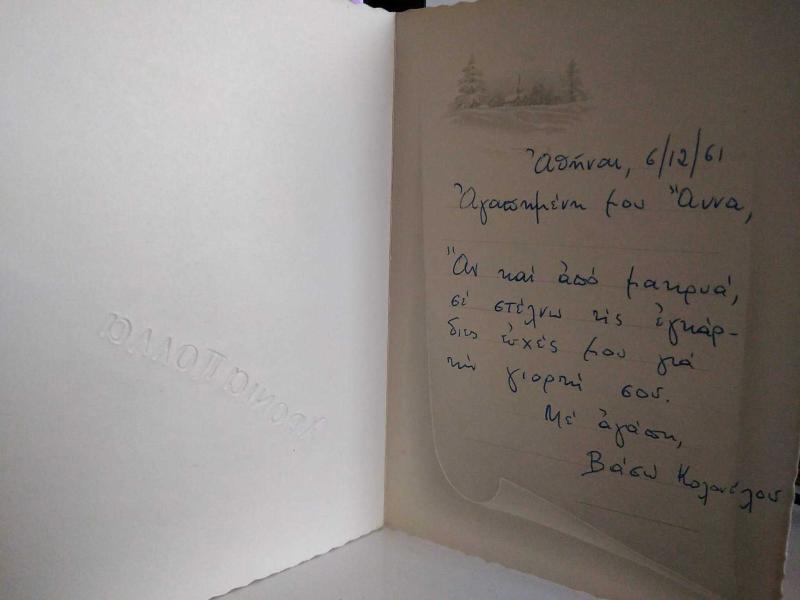 Χρόνια Πολλά
Ἀθῆναι, 6/12/61
Ἀγαπημένη μου Ἄννα,
Ἄν καί ἀπό μακρυά,
σέ στέλνω τίς ἐγκάρ-
διες εὐχές μου γιά
τήν γιορτή σου.
Μέ ἀγάπη,
Βάσω Κολονέλου